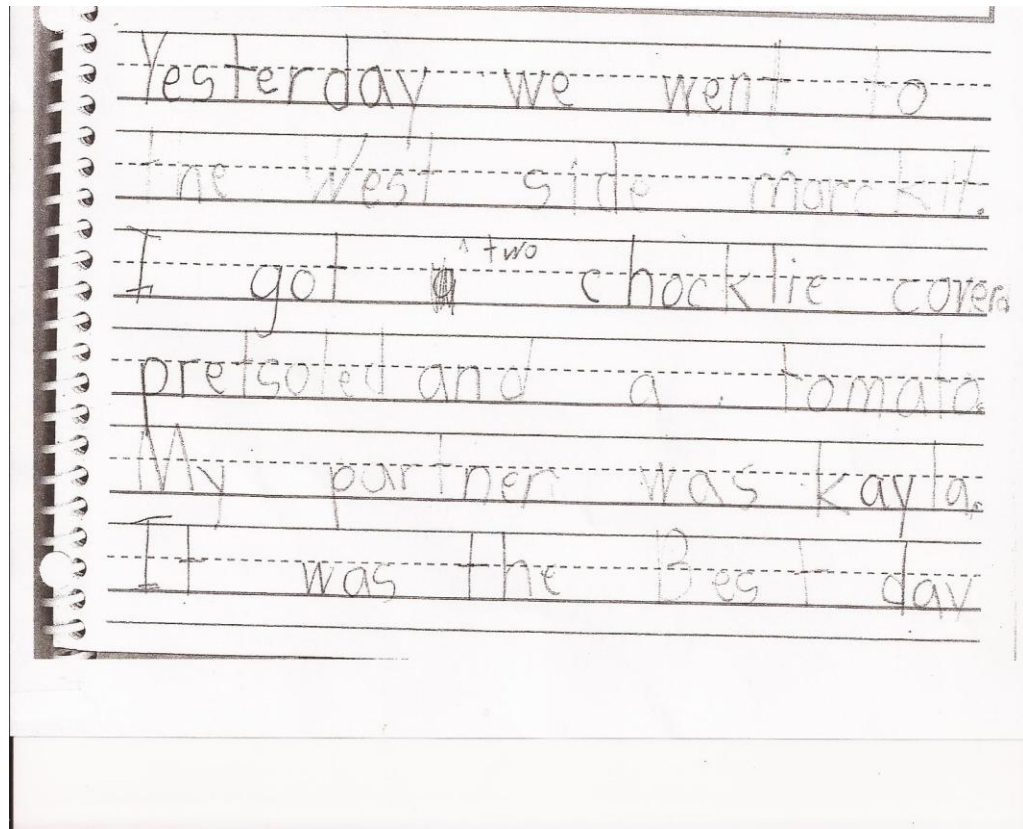 Yesterday we went to
the West side marckit.
I got ^ two chocklie coverd
pretsoled and a . tomato
My partner was kayla.
It was the Best day